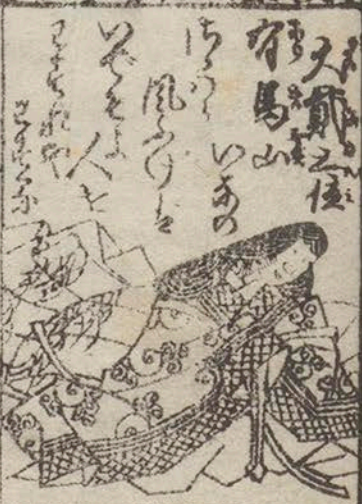 大貳三位
有馬山
いなの
さゝはら
風ふけば
いでそよ
人を
わすれや